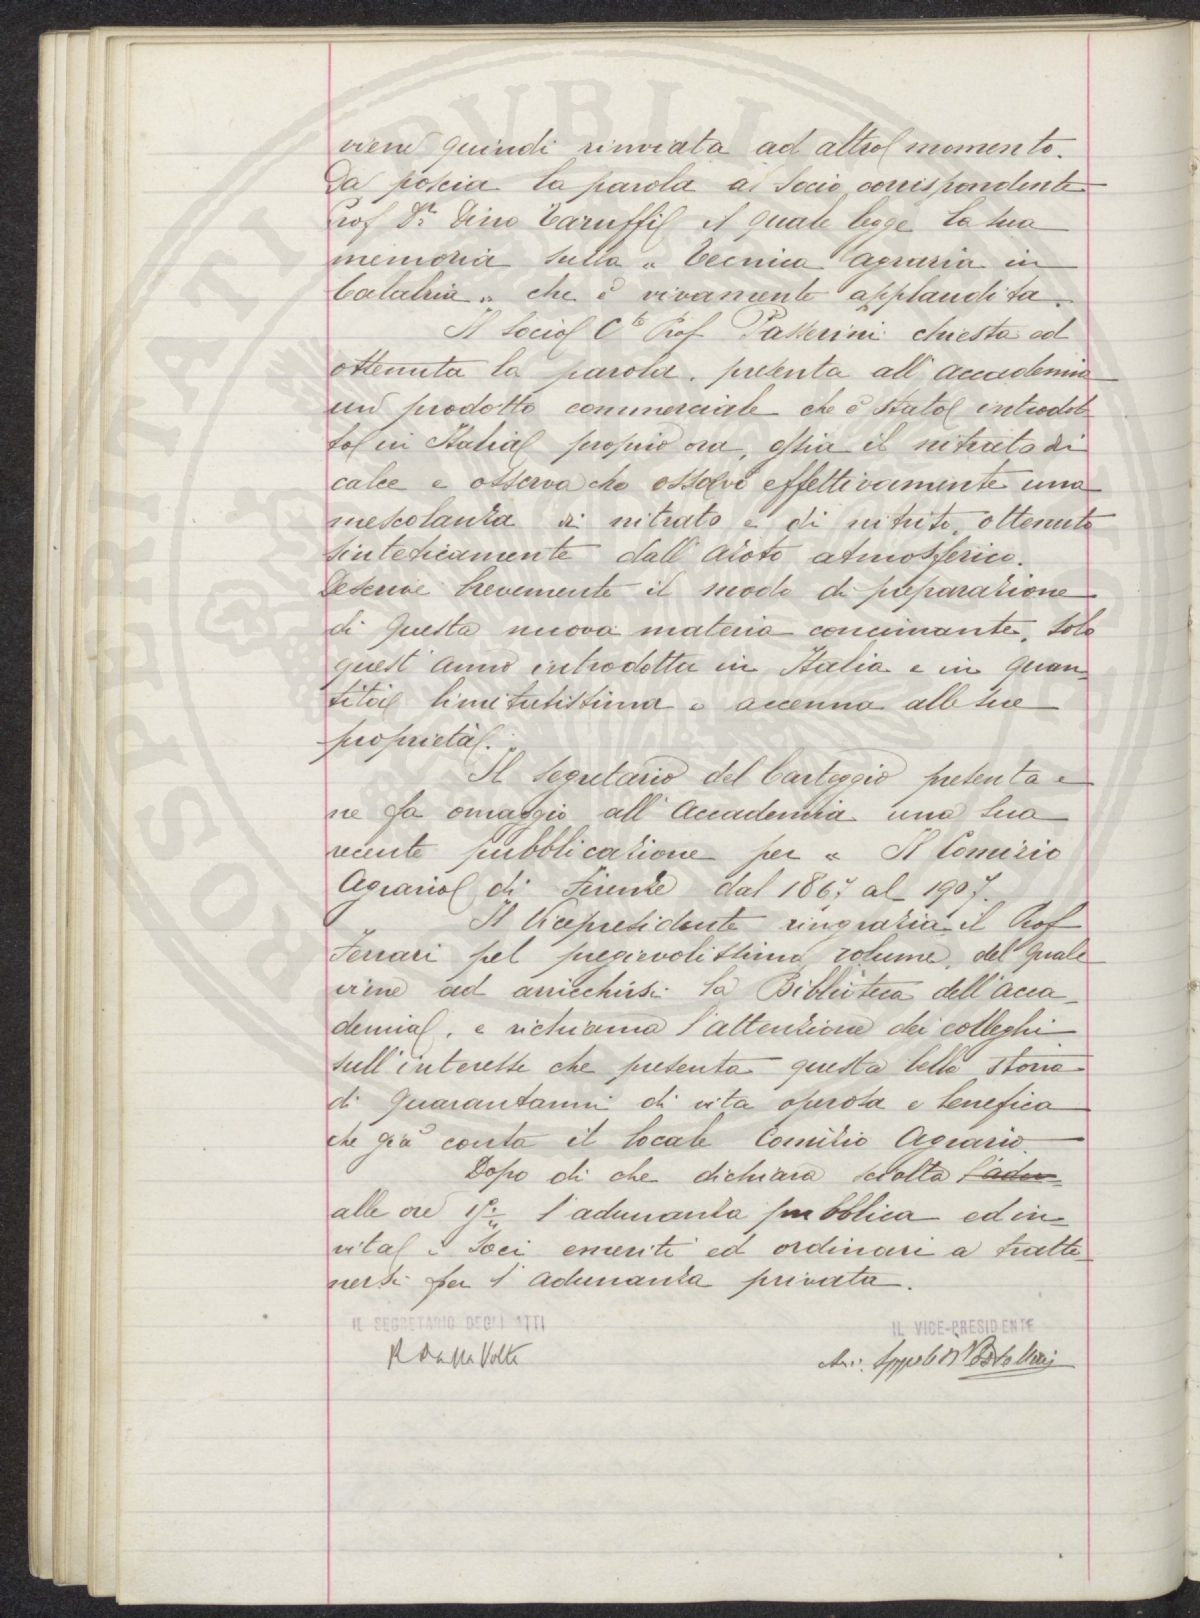 viene quindi rinviata ad altro momento.
Dà poscia la parola al Socio corrispondente
Prof Dr Dino Taruffi il quale legge la sua
memoria sulla "Tecnica agraria in
Calabria" che è vivamente applaudita.
Il Socio Cte Prof Passerini chiesta ed
ottenuta la parola, presenta all'accademia
un prodotto commerciale che è stato introdot
to in Italia proprio ora, ossia il nitrato di
calce e osserva che esservi effettivamente una
mescolanza di nitrato e di nitrito, ottenuto
sinteticamente dall'azoto atmosferico.
Descrive brevemente il modo di preparazione
di questa nuova materia concimante, solo
quest'anno introdotta in Italia e in quan-
tità limitatissima e accenna alle sue
proprietà.
Il Segretario del Carteggio presenta e
ne fa omaggio all'Accademia una sua
recente pubblicazione per "Il Comizio
Agrario di Firenze dal 1867 al 1907.
Il Vicepresidente ringrazia il Prof
Ferrari pel pregievolissimo volume, del quale
viene ad arricchirsi la Biblioteca dell'acca-
demia, e richiama l'attenzione dei colleghi
sull'interesse che presenta questa bella storia
di quarantanni di vita operosa e benefica
che già conta il locale Comizio Agrario.
Dopo di che dichiara sciolta l'adu-
alle ore l'adunanza pubblica ed in-
vita i Soci emeriti ed ordinari a tratte-
nersi per l'adunanza privata.
IL SEGRETARIO DEGLI ATTI
IL VICE-PRESIDENTE
R Dalla Volta
SOPERITATI PVBLI